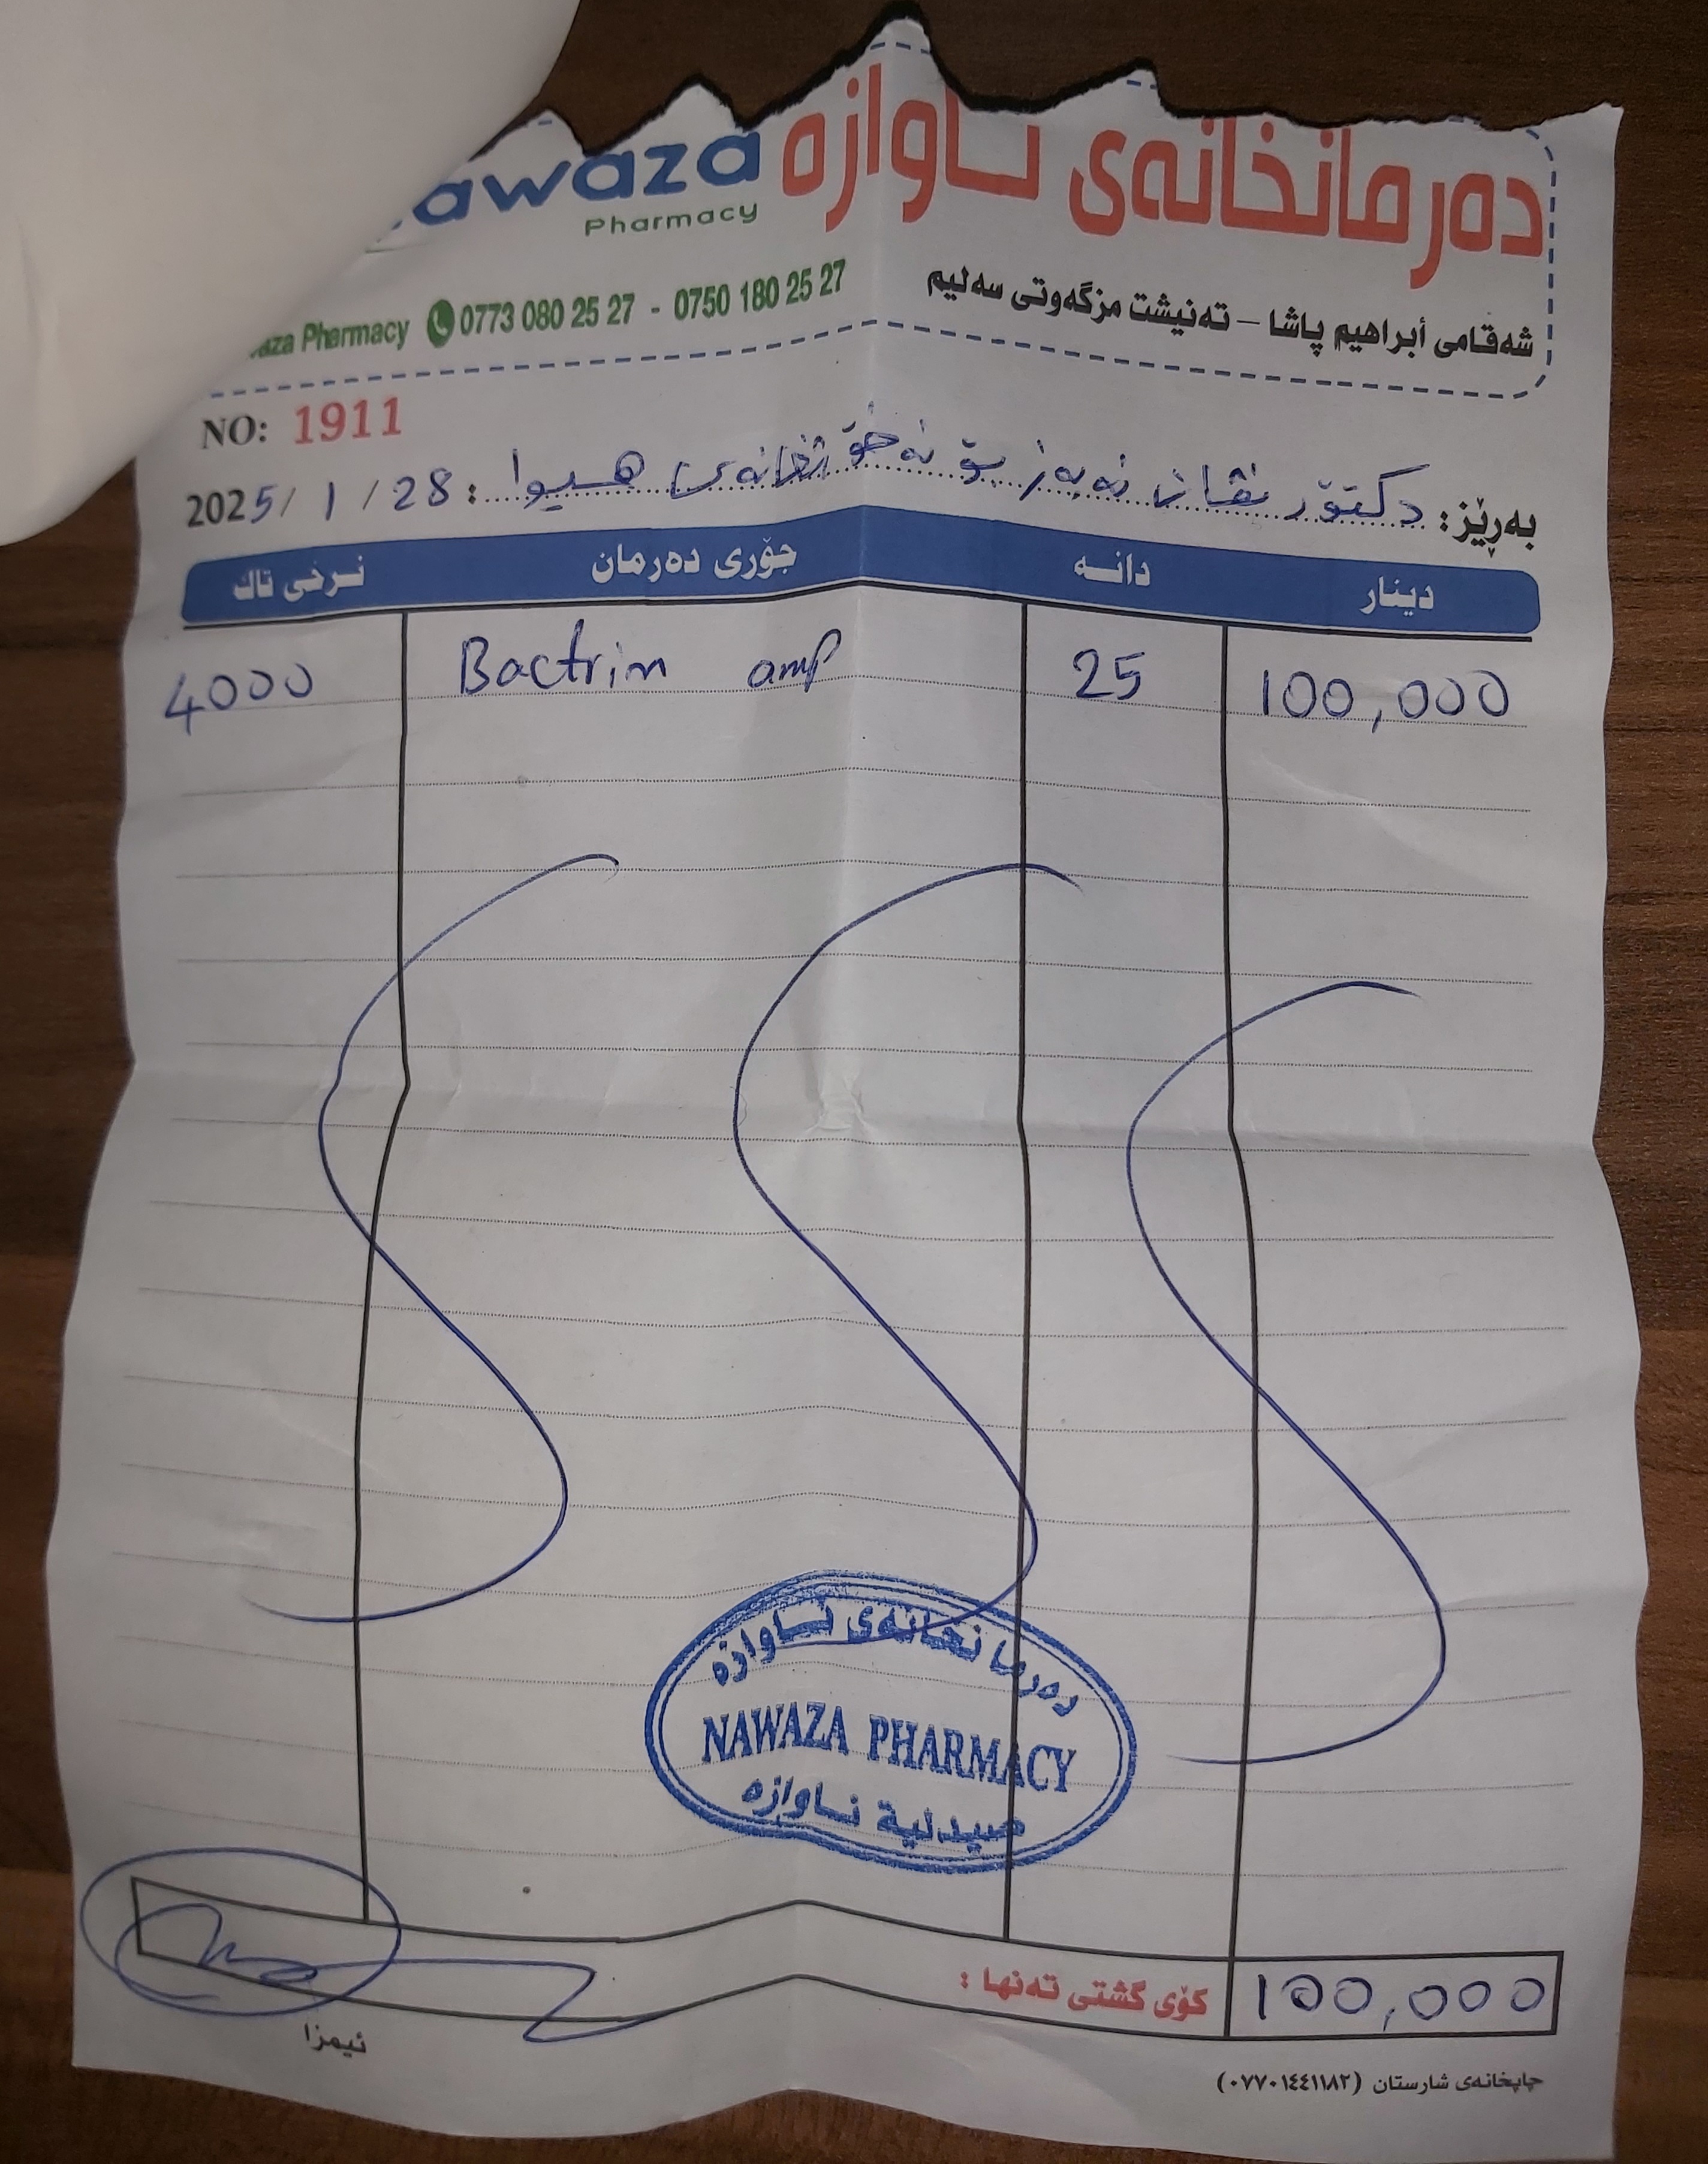 awaza دەرمانخانەی ناوازە
Pharmacy
شەقامی أبراهیم پاشا – تەنیشت مزگەوتی سەلیم
aza Pharmacy 0773 080 25 27 - 0750 180 25 27
NO: 1911
بەڕێز: دکتۆر نەبەز بۆ نەخۆشخانەی هیوا : 2025/ 1 / 28
دینار دانە جۆری دەرمان نرخی تاك
100,000 25 Bactrim amp 4000
دەرمانخانەی ناوازە
NAWAZA PHARMACY
صیدلیة ناوازە
كۆی گشتی تەنها : 100,000
ئیمزا
چاپخانەی شارستان (٠٧٧٠١٤٤١١٨٢)